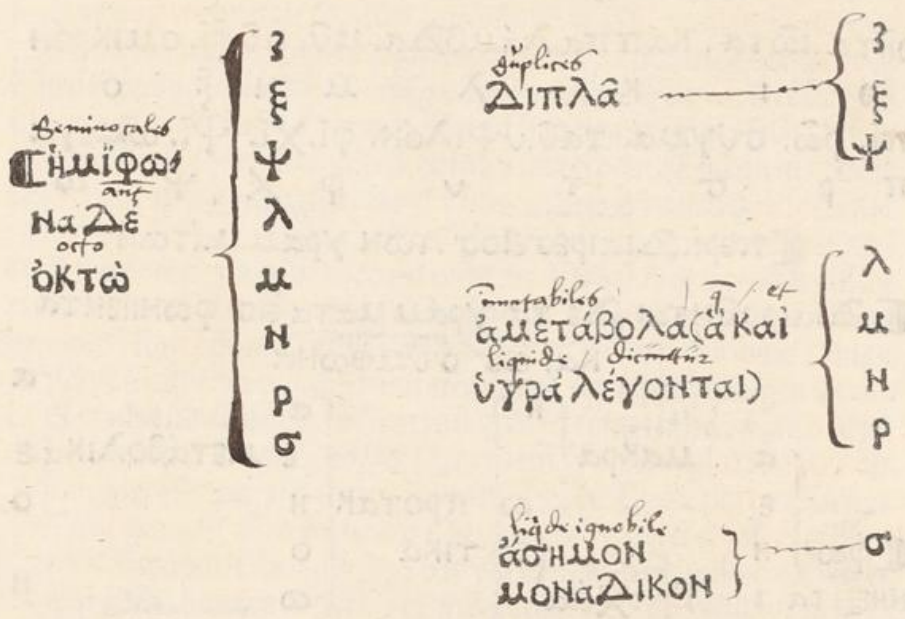 Seminocales
ἡμίφω/
aut
ΝαΔε
octo
ὀκτὼ
ζ
ξ
ψ
λ
μ
ν
ρ
σ
duplices
Διπλᾶ
ζ
ξ
ψ
immutabiles et
ἀμετάβολα(ἃ καὶ
liquide dicuntur
ὑγρὰ λέγονται)
λ
μ
ν
ρ
ἄσημον
μοναΔικον
σ